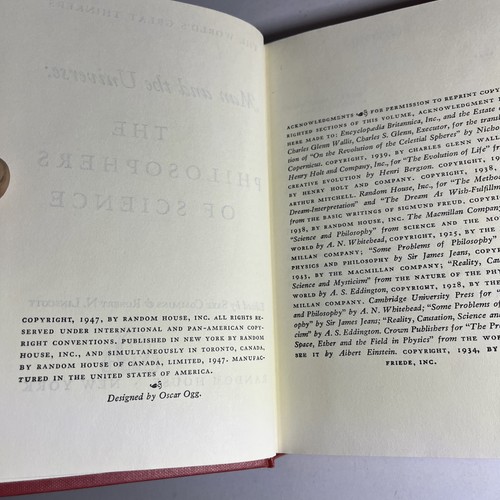 THE WORLD'S GREAT THINKERS
Man and the Universe:
THE
PHILOSOPHERS
OF SCIENCE
COPYRIGHT, 1947, BY RANDOM HOUSE, INC. ALL RIGHTS RE-
SERVED UNDER INTERNATIONAL AND PAN-AMERICAN COPY-
RIGHT CONVENTIONS. PUBLISHED IN NEW YORK BY RANDOM
HOUSE, INC., AND SIMULTANEOUSLY IN TORONTO, CANADA,
BY RANDOM HOUSE OF CANADA, LIMITED, 1947. MANUFAC-
TURED IN THE UNITED STATES OF AMERICA.
Designed by Oscar Ogg.
RANDOM HOUSE · NEW YORK
ACKNOWLEDGMENTS FOR PERMISSION TO REPRINT COPY
RIGHTED SECTIONS OF THIS VOLUME, ACKNOWLEDGMENT
HERE MADE TO: Encyclopædia Britannica, Inc., and the Estate
Charles Glenn Wallis, Charles S. Glenn, Executor, for the transla
tion of "On the Revolution of the Celestial Spheres" by Nicho
Copernicus. COPYRIGHT, 1939, BY CHARLES GLENN WALL
Henry Holt and Company, Inc., for "The Evolution of Life" f
CREATIVE EVOLUTION by Henri Bergson. COPYRIGHT, 19
BY HENRY HOLT AND COMPANY. COPYRIGHT, 1938,
ARTHUR MITCHELL. Random House, Inc., for "The Method
Dream-Interpretation" and "The Dream As Wish-Fulfillm
from THE BASIC WRITINGS OF SIGMUND FREUD. COPYRIG
1938, BY RANDOM HOUSE, INC. The Macmillan Company
"Science and Philosophy" from SCIENCE AND THE MO
WORLD by A. N. Whitehead, COPYRIGHT, 1925, BY THE
MILLAN COMPANY; "Some Problems of Philosophy"
PHYSICS AND PHILOSOPHY by Sir James Jeans, COPYR
1943, BY THE MACMILLAN COMPANY; "Reality, Cau
Science and Mysticism" from THE NATURE OF THE PHY
WORLD by A. S. Eddington, COPYRIGHT, 1928, BY THE
MILLAN COMPANY. Cambridge University Press for "
and Philosophy" by A. N. Whitehead; "Some Problems of
ophy" by Sir James Jeans; "Reality, Causation, Science and
cism" by A. S. Eddington. Crown Publishers for "The Pro
Space, Ether and the Field in Physics" from THE WOR
SEE IT by Albert Einstein. COPYRIGHT, 1934, BY
FRIEDE, INC.